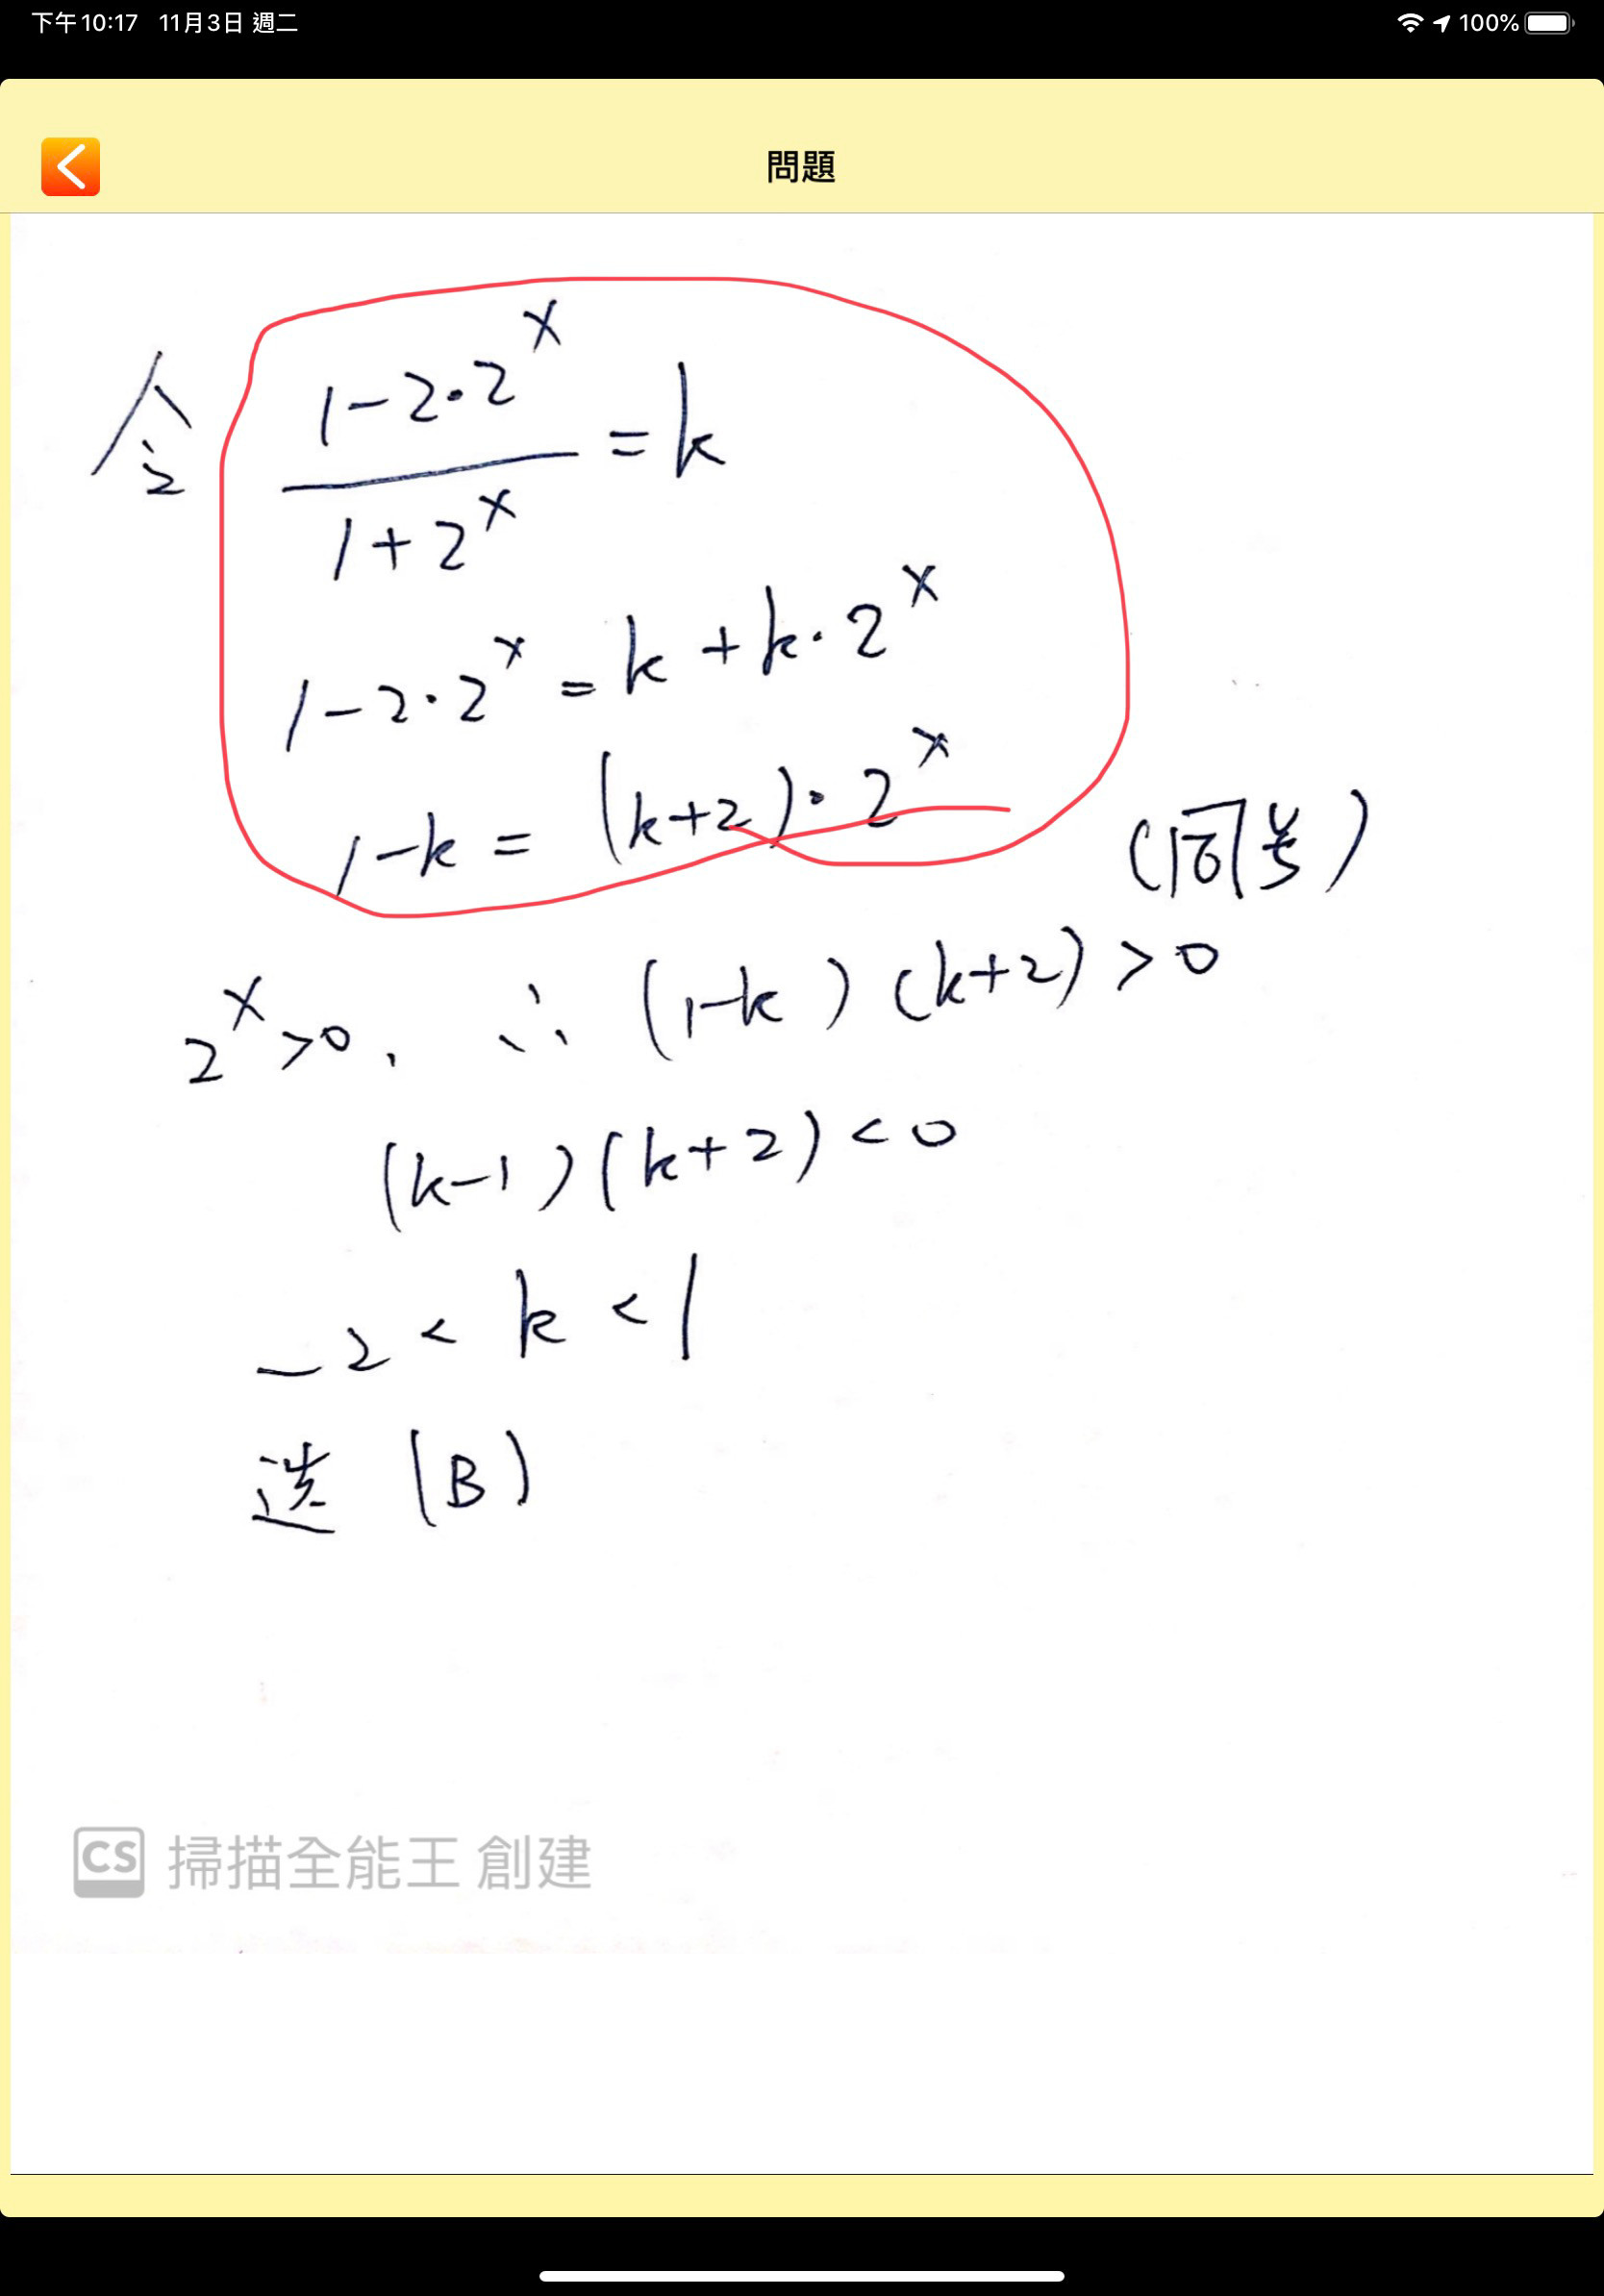 下午10:17 11月3日 週二 100%
問題
令 (1-2·2^x)/(1+2^x) = k
1-2·2^x = k+k·2^x
1-k = (k+2)·2^x (同号)
2^x>0, ∴ (1-k)(k+2)>0
(k-1)(k+2)<0
-2<k<1
选 (B)
CS 掃描全能王 創建